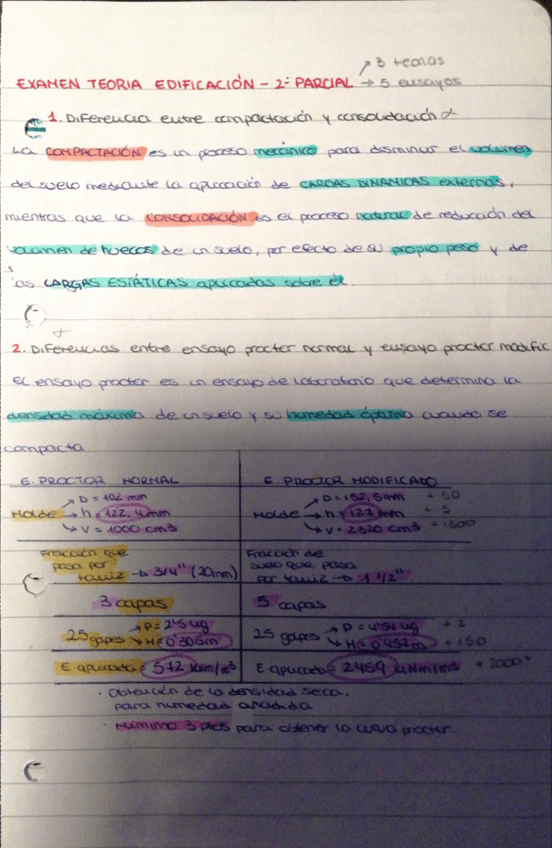 → 3 teorías
EXAMEN TEORIA EDIFICACIÓN - 2º PARCIAL → 5 ensayos
1. Diferencia entre compactación y consolidación
La COMPACTACIÓN es un proceso mecánico para disminuir el volumen
del suelo mediante la aplicación de CARGAS DINAMICAS externas,
mientras que la CONSOLIDACIÓN es el proceso natural de reducción del
volumen de huecos de un suelo, por efecto de su propio peso y de
las CARGAS ESTÁTICAS aplicadas sobre él.
2. Diferencias entre ensayo proctor normal y ensayo proctor modific
El ensayo proctor es un ensayo de laboratorio que determina la
densidad máxima de un suelo y su humedad óptima cuando se
compacta.
E. PROCTOR NORMAL
Molde → D = 102 mm
→ h = 122,4 mm
→ V = 1000 cm3
Fracción que
pasa por
tamiz → 3/4" (20mm)
3 capas
25 golpes → P = 2'5 kg
→ H = 0'305m
E aplicada = 572 kNm/m3
E. PROCTOR MODIFICADO
Molde → D = 152,5mm + 50
→ h = 127 mm + 5
→ V = 2320 cm3 + 1300
Fracción de
suelo que pasa
por tamiz → 1 1/2"
5 capas
25 golpes → P = 4'54 kg + 2
→ H = 0'457m + 150
E aplicada = 2459 kNm/m3 + 2000
· Obtención de la densidad seca,
para humedad añadida
· Mínimo 3 ptos para obtener la curva proctor.